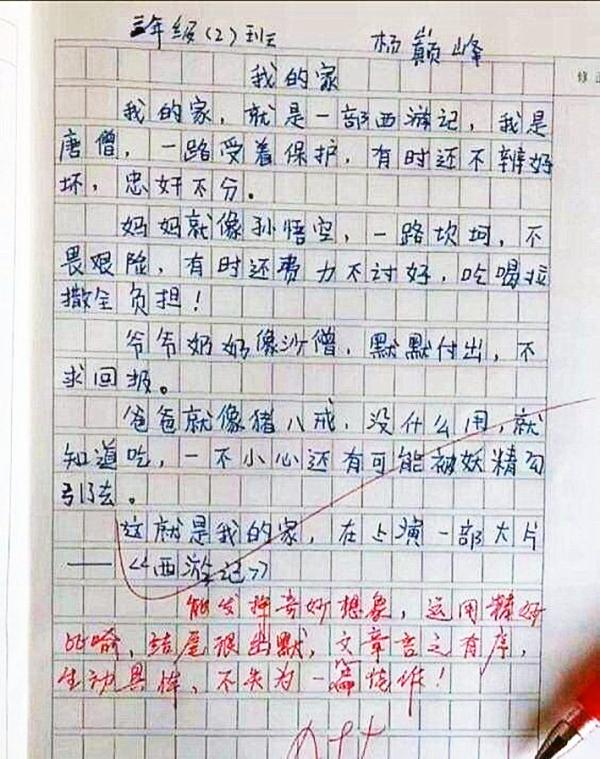 三年级(2)班 杨巅峰
我的家
我的家，就是一部西游记，我是
唐僧，一路受着保护，有时还不辨好
坏，忠奸不分。
妈妈就像孙悟空，一路坎坷，不
畏艰险，有时还费力不讨好，吃喝拉
撒全负担！
爷爷奶奶像沙僧，默默付出，不
求回报。
爸爸就像猪八戒，没什么用，就
知道吃，一不小心还有可能被妖精勾
引了去。
这就是我的家，在上演一部大片
——《西游记》
能发挥奇妙想象，运用精妙
比喻，结尾很幽默，文章言之有序，
生动具体，不失为一篇佳作！
A++